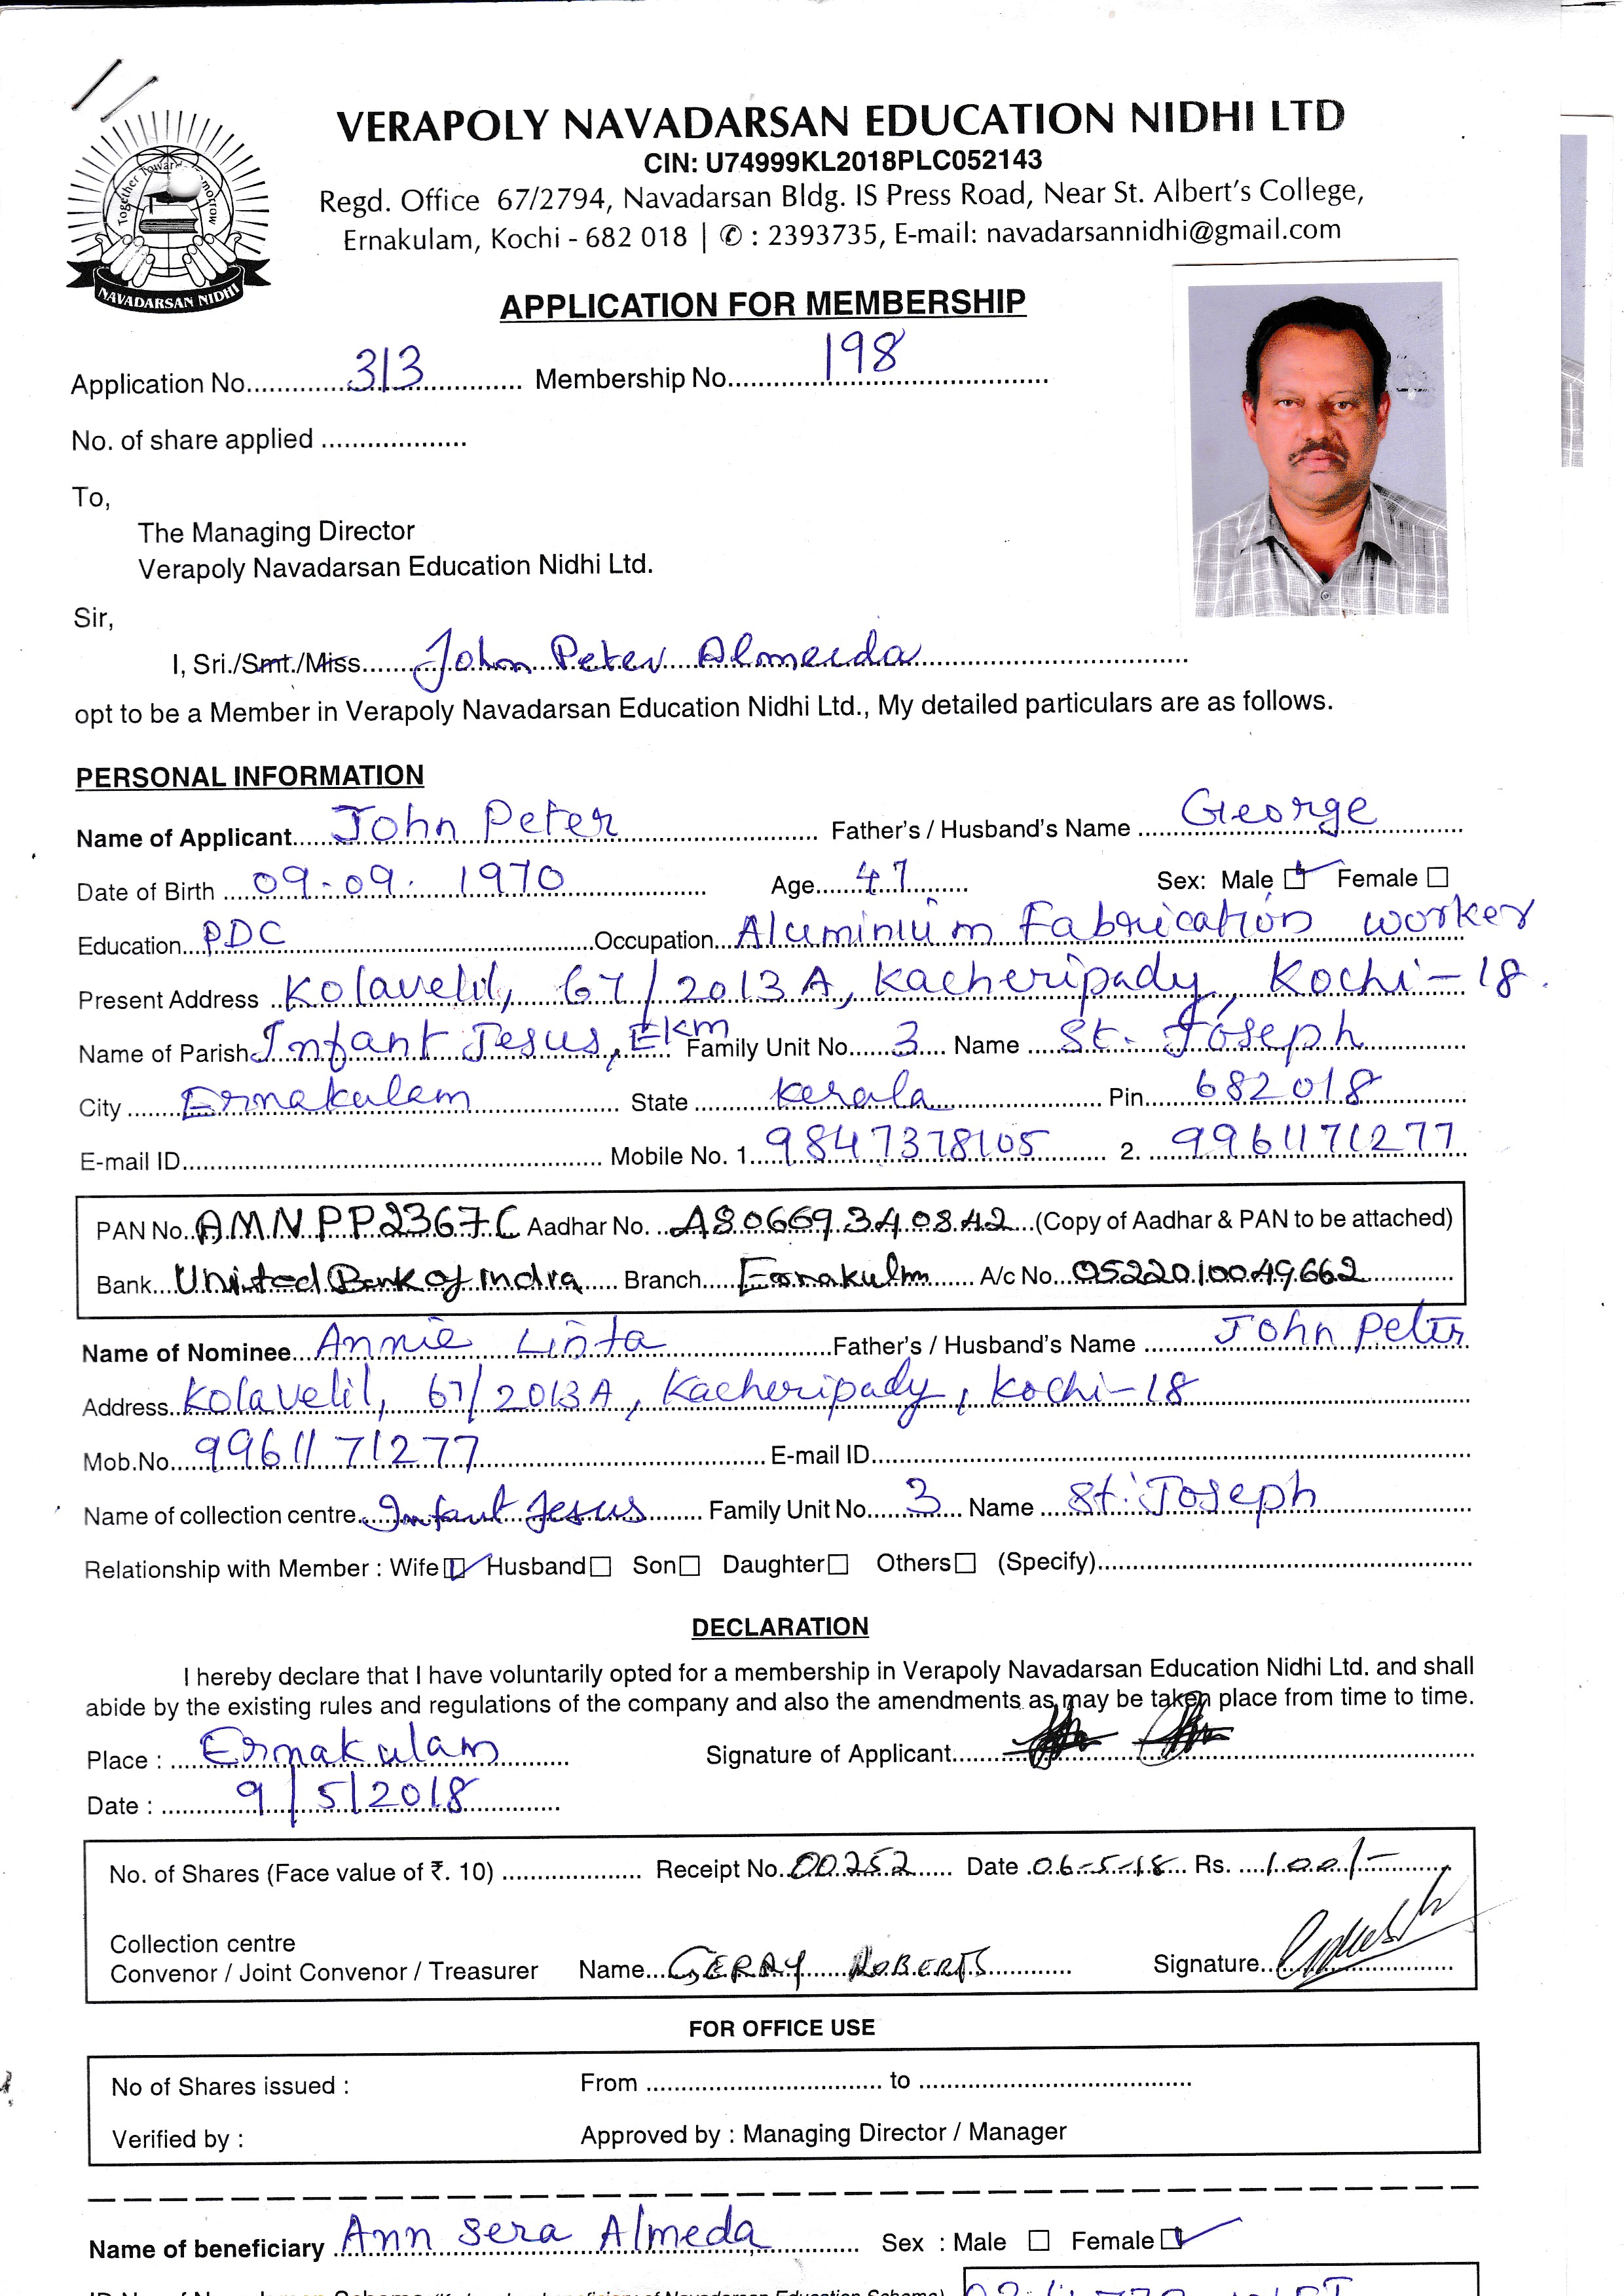 VERAPOLY NAVADARSAN EDUCATION NIDHI LTD
CIN: U74999KL2018PLC052143
Regd. Office 67/2794, Navadarsan Bldg. IS Press Road, Near St. Albert's College,
Ernakulam, Kochi - 682 018 | ✆ : 2393735, E-mail: navadarsannidhi@gmail.com
Together Towards Tomorrow
NAVADARSAN NIDHI
APPLICATION FOR MEMBERSHIP
Application No. 313 Membership No. 198
No. of share applied
To,
The Managing Director
Verapoly Navadarsan Education Nidhi Ltd.
Sir,
I, Sri./Smt./Miss. John Peter Almeida
opt to be a Member in Verapoly Navadarsan Education Nidhi Ltd., My detailed particulars are as follows.
PERSONAL INFORMATION
Name of Applicant John Peter Father's / Husband's Name George
Date of Birth 09-09. 1970 Age 47 Sex: Male Female
Education PDC Occupation Aluminium Fabrication worker
Present Address Kolavelil, 67/2013A, Kacheripady, Kochi-18.
Name of Parish Infant Jesus, Ekm Family Unit No. 3 Name St. Joseph
City Ernakulam State Kerala Pin 682018
E-mail ID Mobile No. 1. 9847378105 2. 9961171277
PAN No. AMNPP2367C Aadhar No. (Copy of Aadhar & PAN to be attached)
Bank United Bank of India Branch Ernakulm A/c No. 0522010049662
Name of Nominee Annie Linta Father's / Husband's Name John Peter
Address Kolavelil, 67/2013A, Kacheripady, Kochi-18
Mob.No. 9961171277 E-mail ID
Name of collection centre Infant Jesus Family Unit No. 3 Name St. Joseph
Relationship with Member : Wife Husband Son Daughter Others (Specify)
DECLARATION
I hereby declare that I have voluntarily opted for a membership in Verapoly Navadarsan Education Nidhi Ltd. and shall
abide by the existing rules and regulations of the company and also the amendments as may be taken place from time to time.
Place : Ernakulam Signature of Applicant
Date : 9/5/2018
No. of Shares (Face value of ₹. 10) Receipt No. 00252 Date 06-5-18 Rs. 100/-
Collection centre
Convenor / Joint Convenor / Treasurer Name GERRY ROBERTS Signature
FOR OFFICE USE
No of Shares issued : From to
Verified by : Approved by : Managing Director / Manager
Name of beneficiary Ann Sera Almeda Sex : Male Female